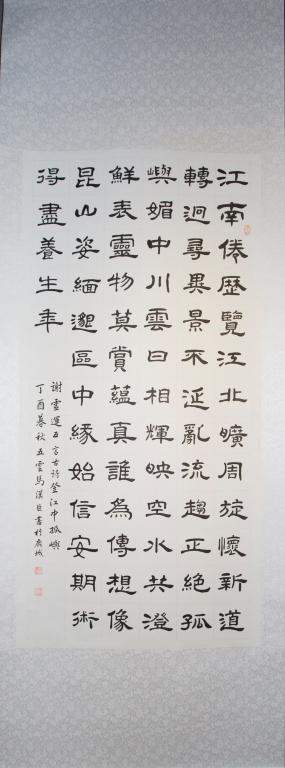 江南倦歷覽江北曠周旋懷新道
轉迥尋異景不延亂流趨正絕孤
嶼媚中川雲日相輝映空水共澄
鮮表靈物莫賞蘊真誰為傳想像
昆山姿緬邈區中緣始信安期術
得盡養生年
謝靈運五言古詩登江中孤嶼
丁酉暮秋五雲馬漢書於鹿城